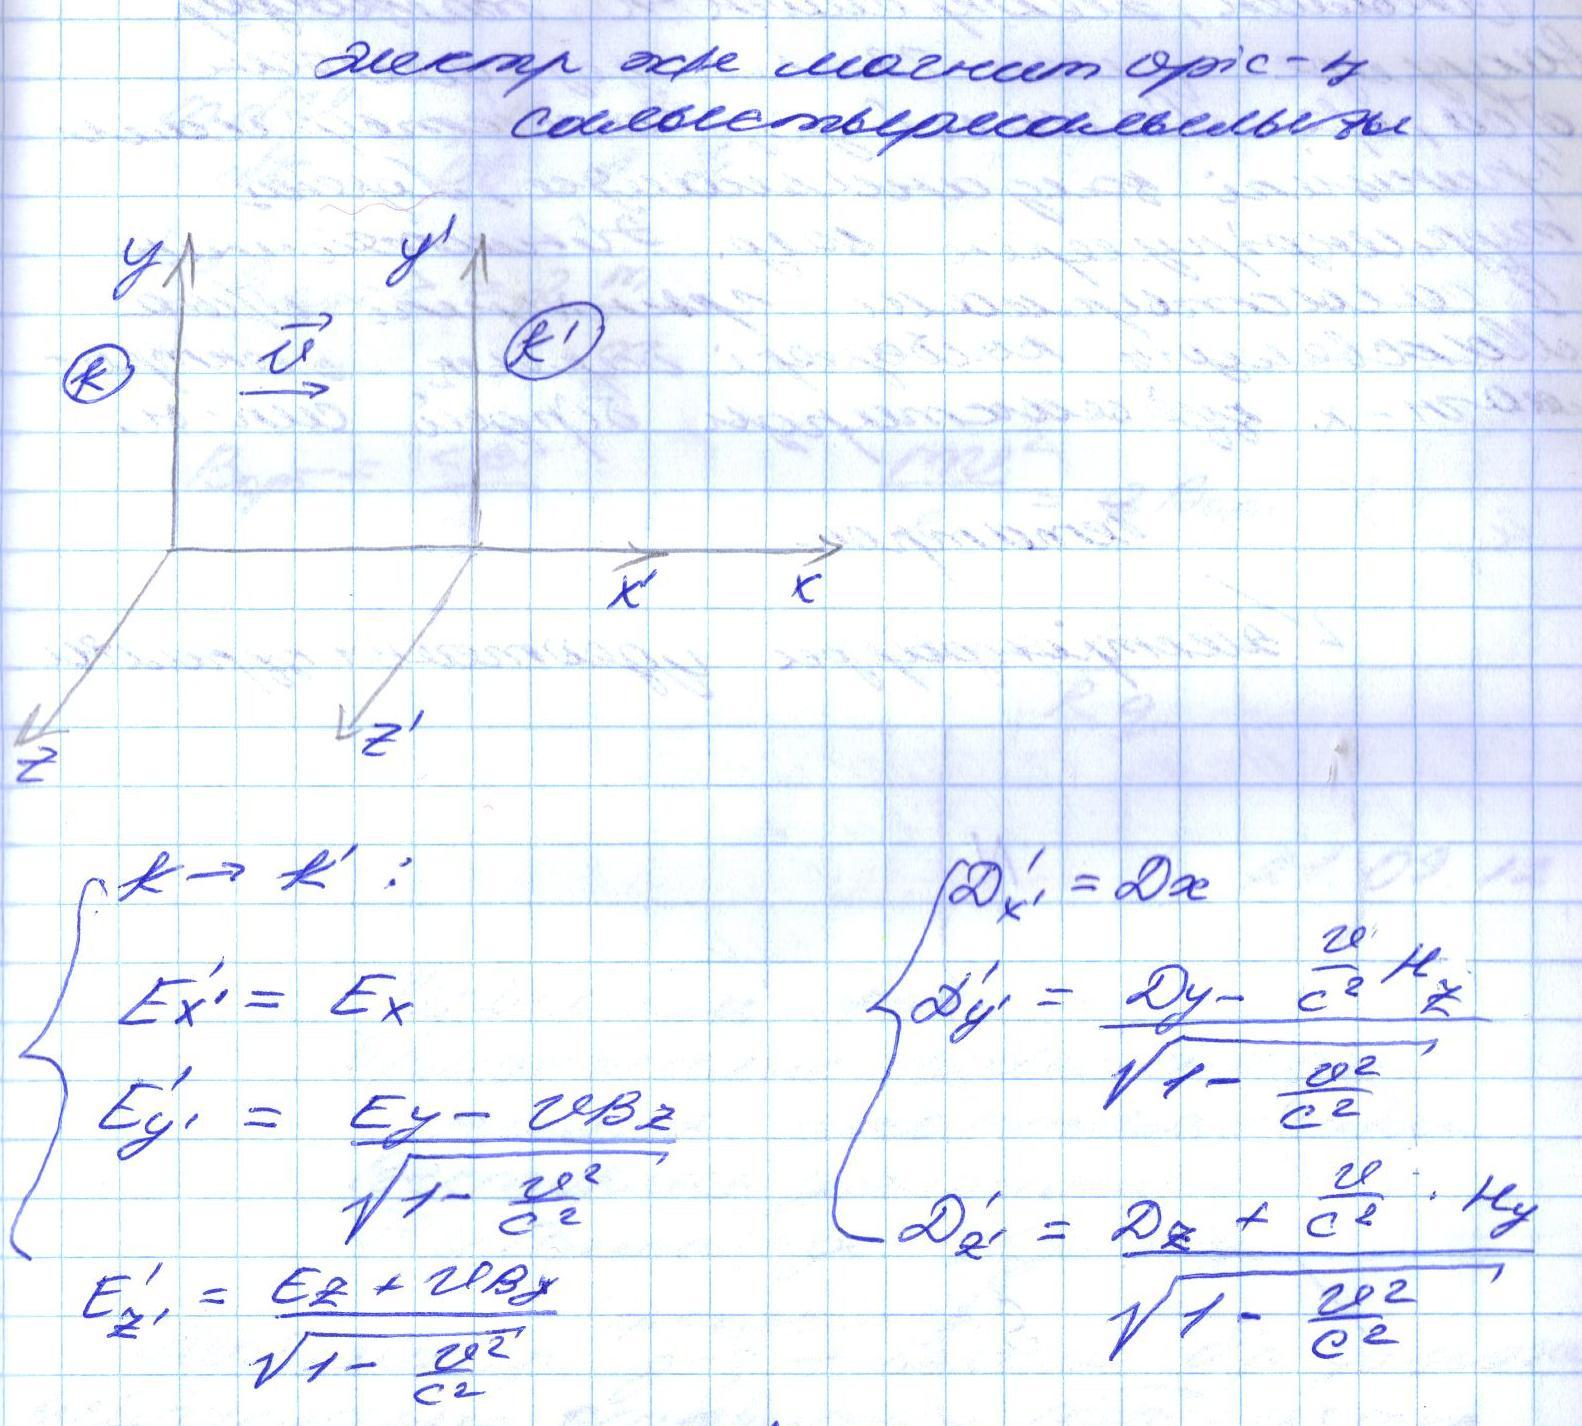 Электр ж/е магнит өріс-ң
салыстырмалылығы
y
y'
K
v⃗
K'
x'
x
z
z'
K → K' :
E'x' = Ex
E'y' = (Ey − vBz) / √(1 − v²/c²)
E'z' = (Ez + vBy) / √(1 − v²/c²)
D'x' = Dx
D'y' = (Dy − v/c² Hz) / √(1 − v²/c²)
D'z' = (Dz + v/c² · Hy) / √(1 − v²/c²)